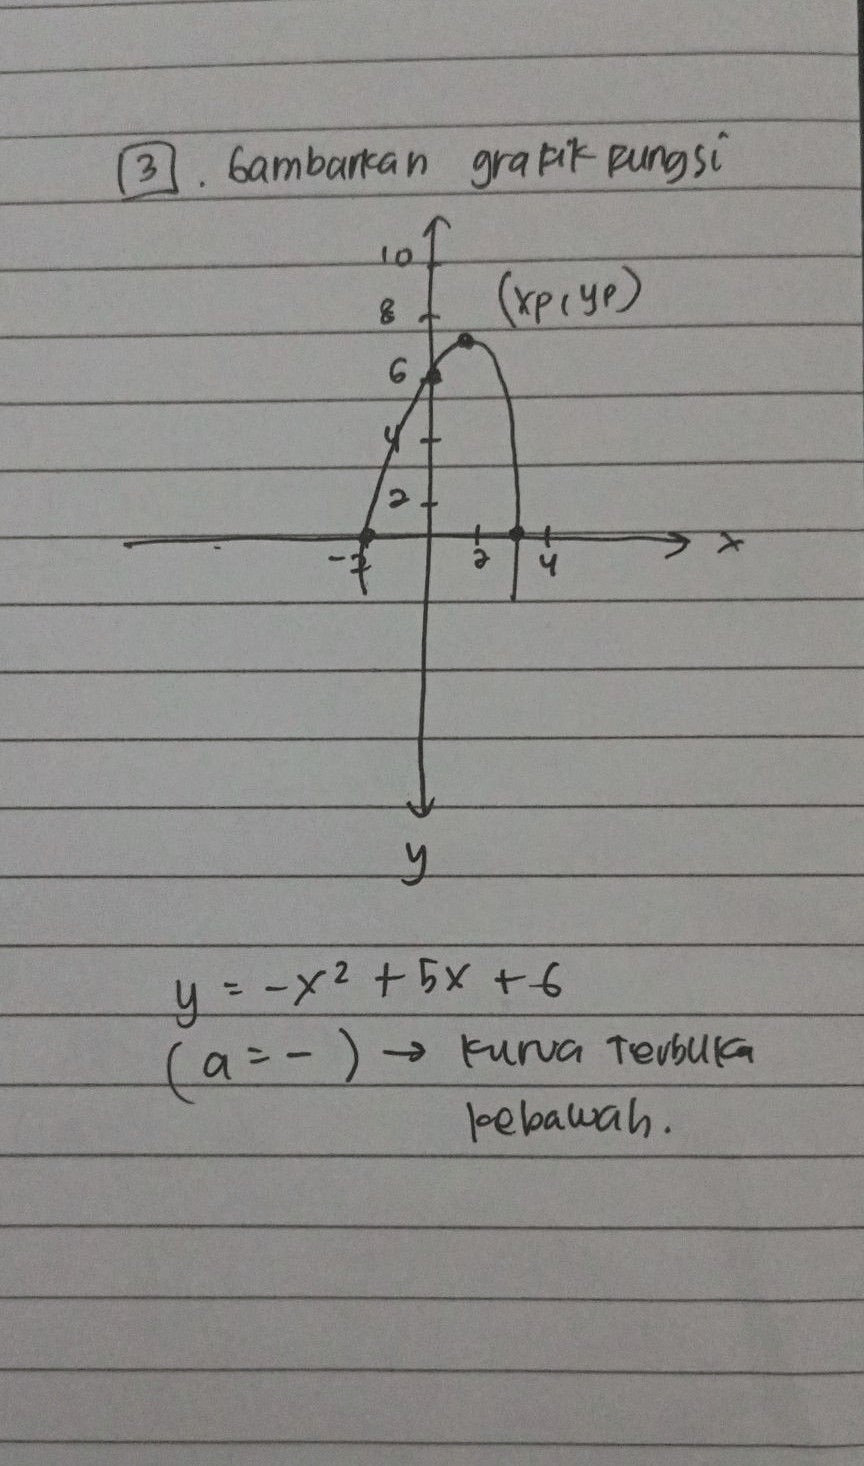 3. Gambarkan grafik fungsi
10
8 (xp, yp)
6
4
2
-2 2 4 x
y
y = -x² + 5x + 6
(a = -) → kurva Terbuka
kebawah.